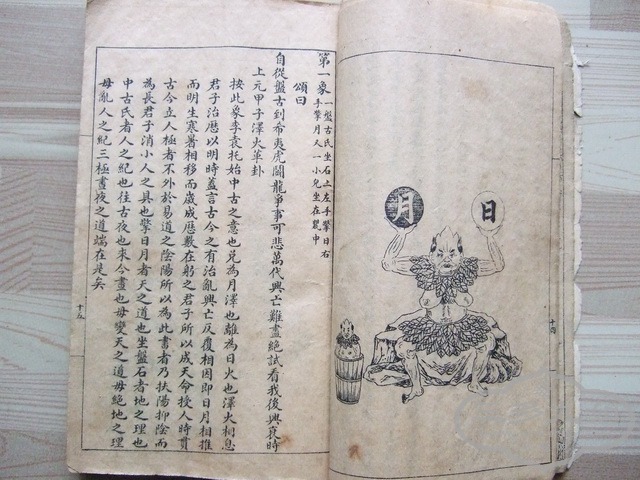 日
月
十四
第一象
一盤古氏坐石上左手擎日右
手擎月又一小兒坐在甕中
頌曰
自從盤古到希夷虎鬬龍爭事可悲萬代興亡難盡絕試看我後興衰時
上元甲子澤火革卦
按此象李袁托始中古之意也兌為月澤也離為日火也澤火相息
君子治歷以明時蓋言古今之有治亂興亡反覆相因即日月相推
而明生寒暑相移而歲成歷數在躬之君子所以成天命授人時貫
古今立人極者不外於易道之陰陽所以為此書者乃扶陽抑陰而
為長君子消小人之具也擎日月者天之道也坐盤石者地之理也
中古民者人之紀也往古夜也來今晝也毋變天之道毋絕地之理
毋亂人之紀三極晝夜之道端在是矣
十五